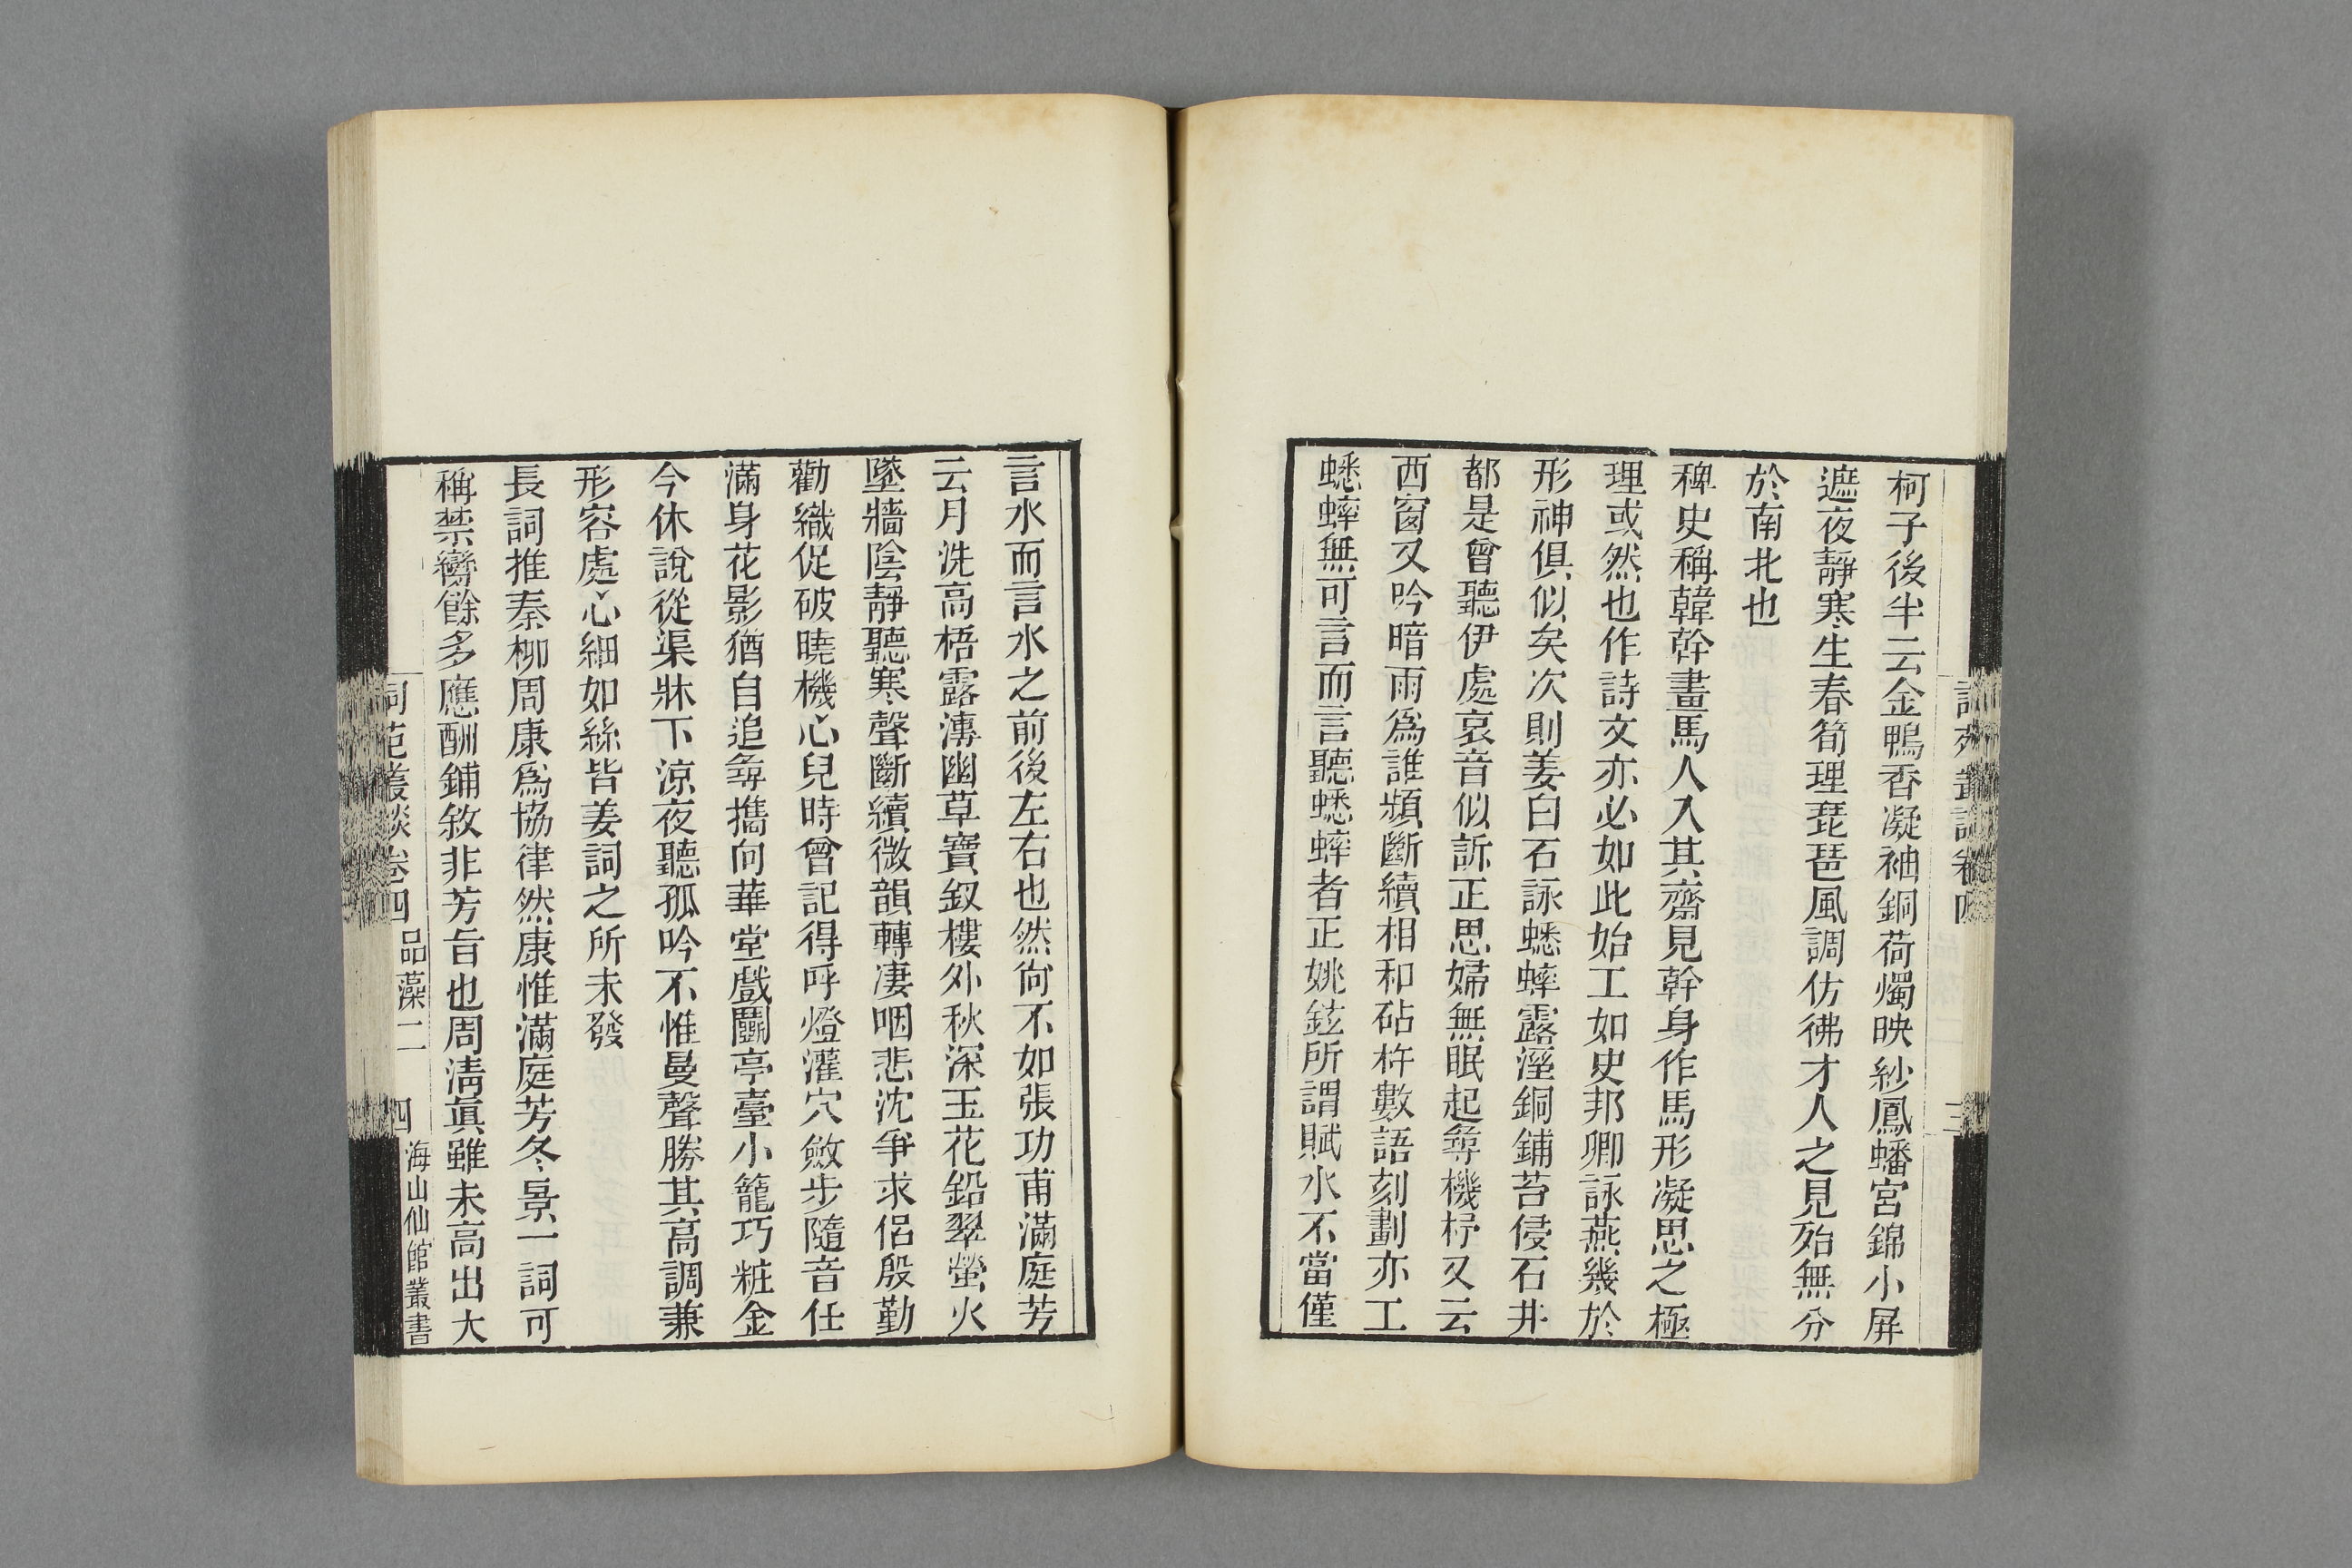 柯子後半云金鴨香凝袖銅荷燭映紗鳳蟠宮錦小屏
遮夜靜寒生春筍理琵琶風調仿彿才人之見殆無分
於南北也
稗史稱韓幹畫馬人入其齋見幹身作馬形凝思之極
理或然也作詩文亦必如此始工如史邦卿詠燕幾於
形神俱似矣次則姜白石詠蟋蟀露溼銅鋪苔侵石井
都是曾聽伊處哀音似訴正思婦無眠起尋機杼又云
西窗又吟暗雨爲誰頻斷續相和砧杵數語刻劃亦工
蟋蟀無可言而言聽蟋蟀者正姚鉉所謂賦水不當僅
言水而言水之前後左右也然尙不如張功甫滿庭芳
云月洗高梧露漙幽草寶釵樓外秋深玉花鉛翠螢火
墜牆陰靜聽寒聲斷續微韻轉凄咽悲沈爭求侶殷勤
勸織促破曉機心兒時曾記得呼燈灌穴斂步隨音任
滿身花影猶自追尋攜向華堂戲鬭亭臺小籠巧粧金
今休說從渠牀下涼夜聽孤吟不惟曼聲勝其高調兼
形容處心細如絲皆姜詞之所未發
長詞推秦柳周康爲協律然康惟滿庭芳冬景一詞可
稱禁臠餘多應酬鋪敘非芳旨也周淸眞雖未高出大
詞苑叢談卷四 品藻二 四 海山仙館叢書